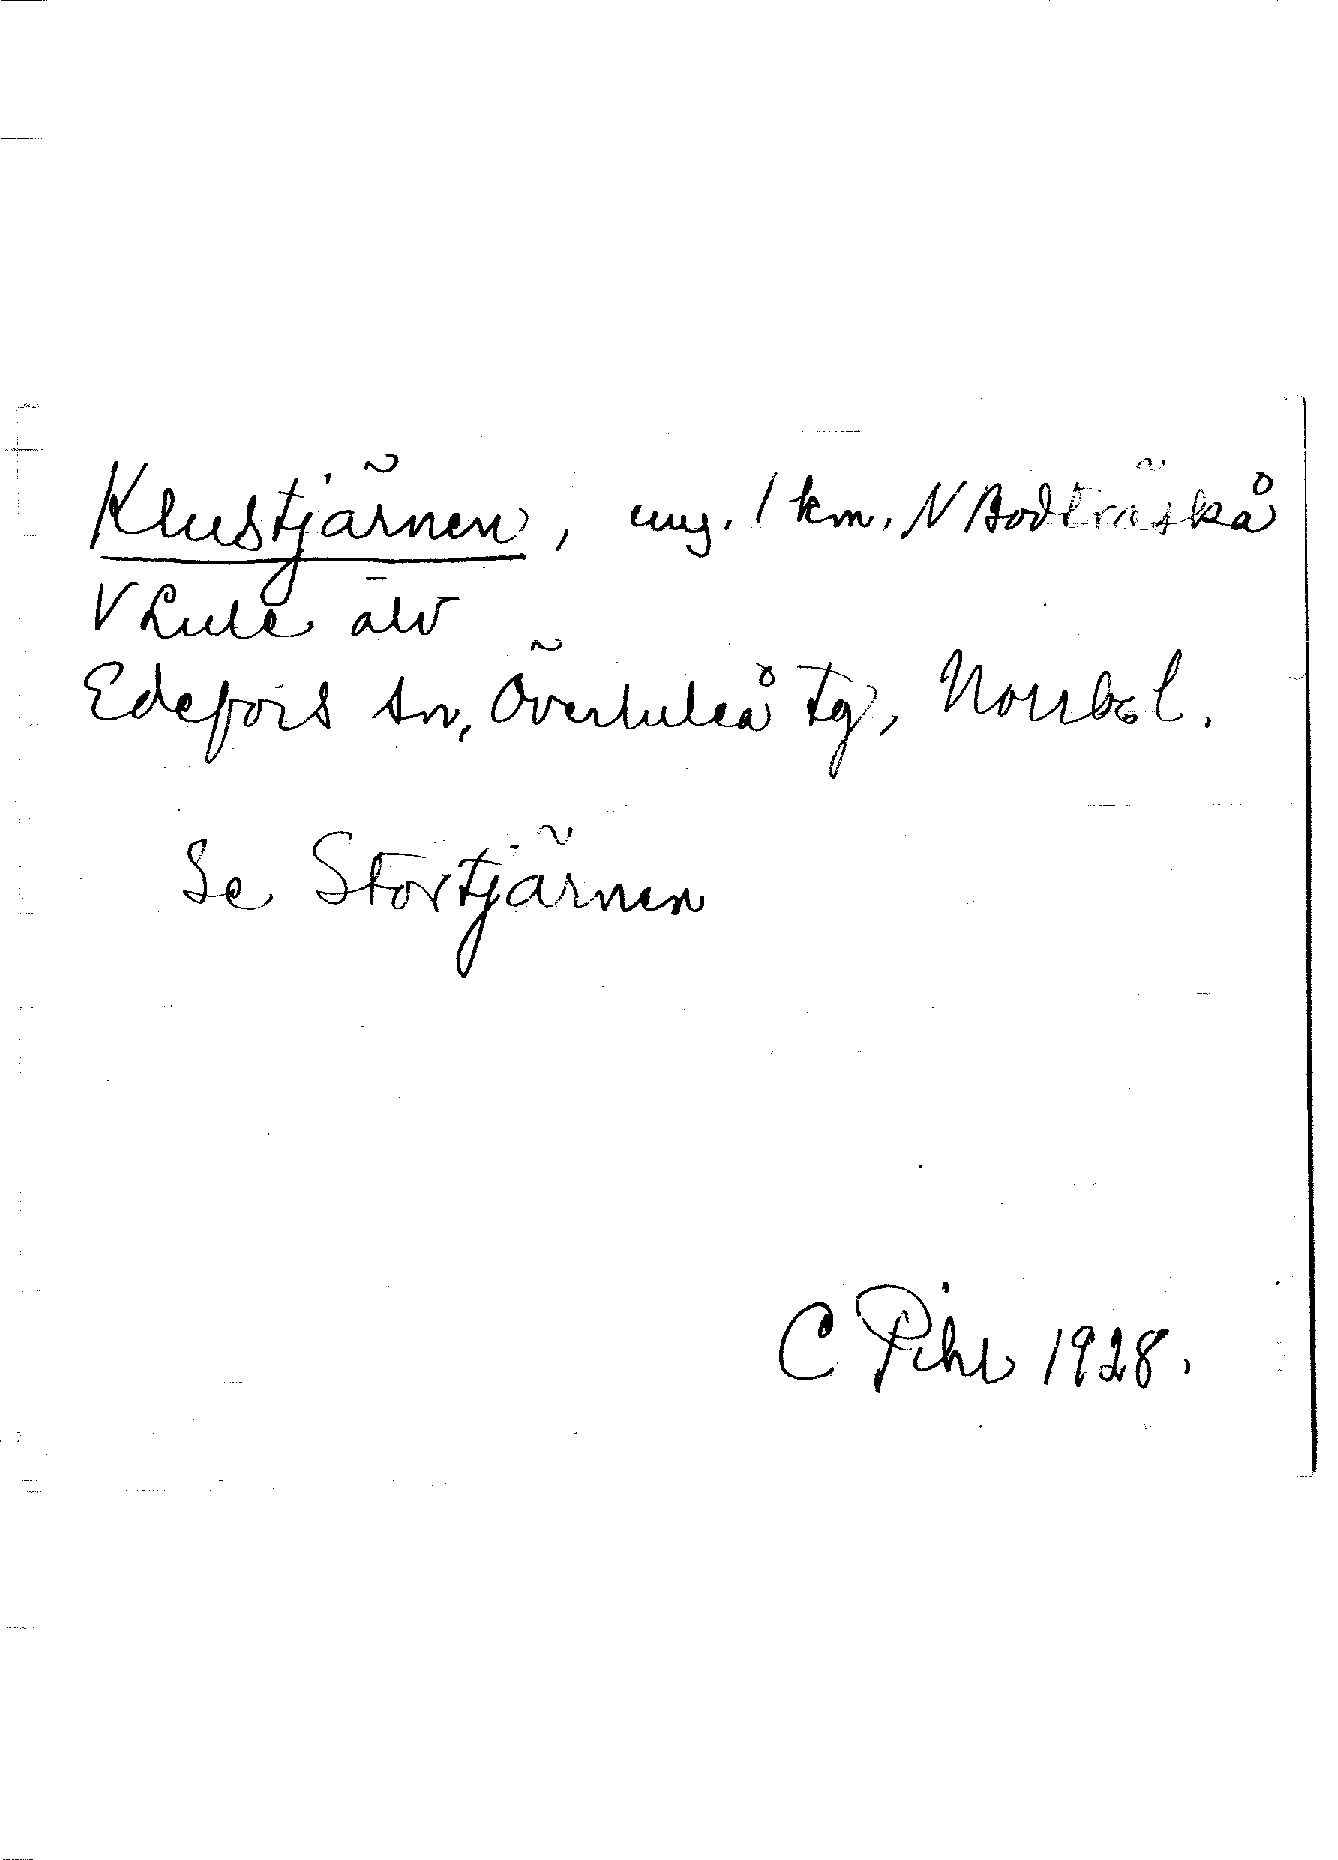 Klustjärnen, ung. 1 km. N Bodträskå
V Lule älv
Edefors sn, Överluleå tg, Norrb. l.
Se Stortjärnen
C Pihl 1928.